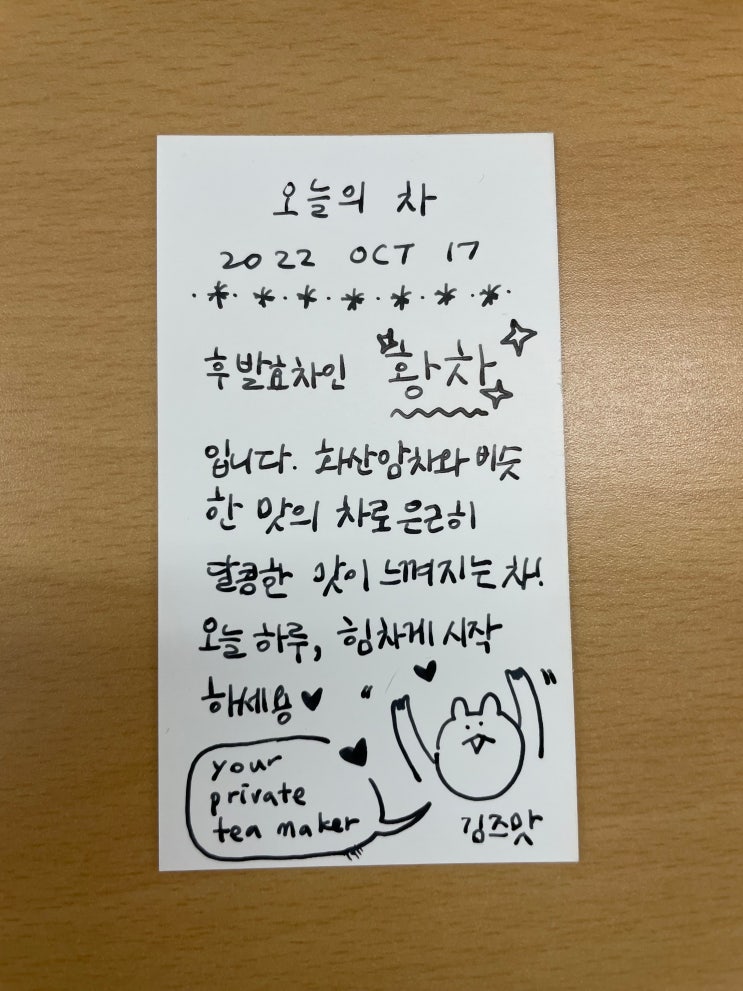 오늘의 차
2022 OCT 17
후발효차인 황차
입니다. 화산암차와 비슷
한 맛의 차로 은근히
달콤한 맛이 느껴지는 차!
오늘 하루, 힘차게 시작
하세용 ♥
your
private
tea maker
김즈맛